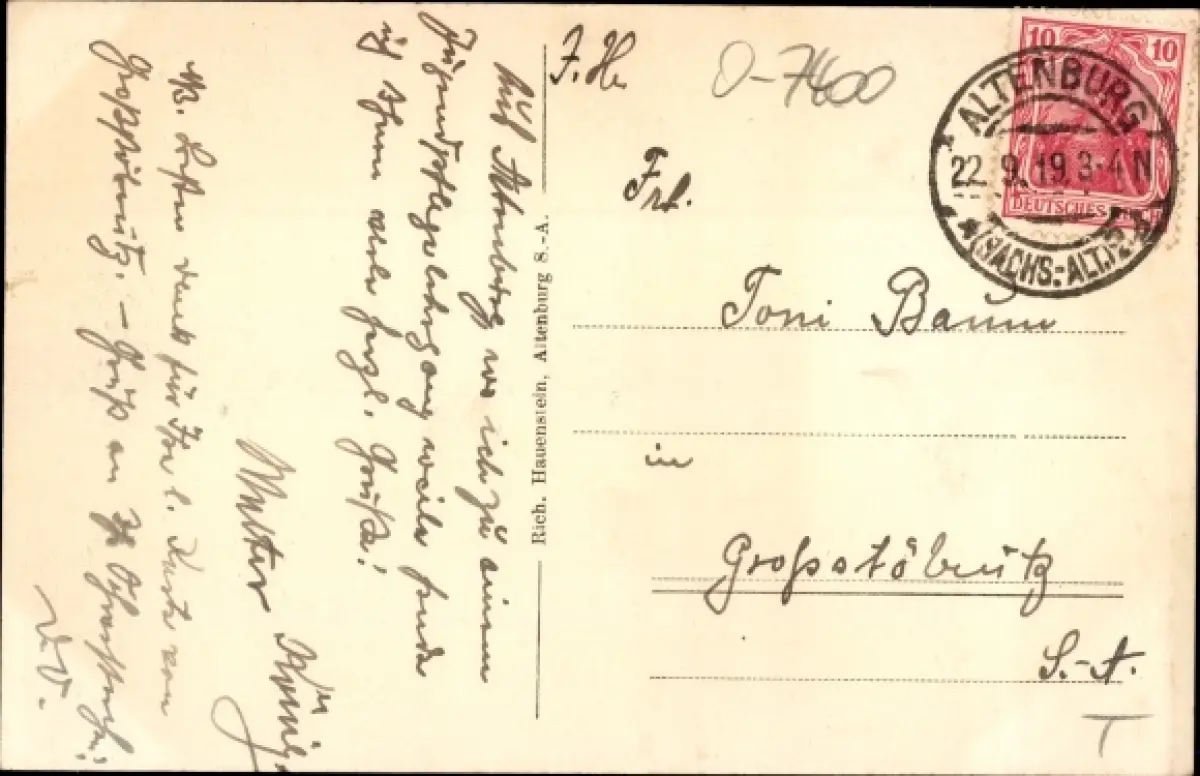 Aus Altenburg wo ich zu einem
Jugendpflegelehrgang weile sende
ich Ihnen viele herzl. Grüße!
Walter König.
NB. Besten Dank für Ihre l. Karte von
Großstöbnitz. – Gruß an
D. O.
Rich. Hauenstein, Altenburg S.-A.
O-7400
10 10
DEUTSCHES REICH
ALTENBURG
22.9.19.3-4N
(SACHS.-ALT.)
Frl.
Toni Baum
in
Großstöbnitz
S.-A.
T